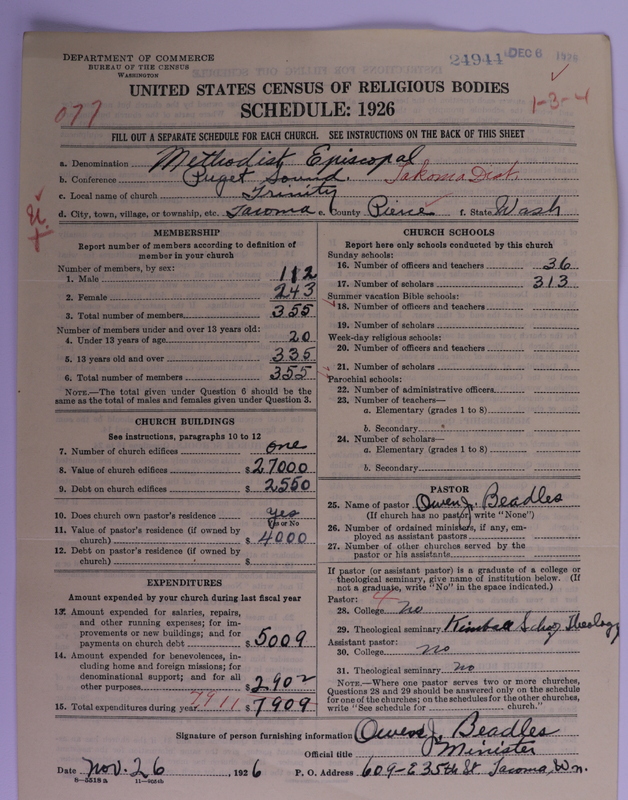 DEPARTMENT OF COMMERCE
BUREAU OF THE CENSUS
WASHINGTON
24941 DEC 6 1926
UNITED STATES CENSUS OF RELIGIOUS BODIES
SCHEDULE: 1926
077
1-3-4
FILL OUT A SEPARATE SCHEDULE FOR EACH CHURCH. SEE INSTRUCTIONS ON THE BACK OF THIS SHEET
a. Denomination Methodist Episcopal
b. Conference Puget Sound. Takoma Dist.
c. Local name of church Trinity
d. City, town, village, or township, etc. Tacoma e. County Pierce f. State Wash
MEMBERSHIP
Report number of members according to definition of
member in your church
Number of members, by sex:
1. Male 112
2. Female 243
3. Total number of members 355
Number of members under and over 13 years old:
4. Under 13 years of age 20
5. 13 years old and over 335
6. Total number of members 355
NOTE.—The total given under Question 6 should be
same as the total of males and females given under Question 3.
CHURCH BUILDINGS
See instructions, paragraphs 10 to 12
7. Number of church edifices one
8. Value of church edifices $27000
9. Debt on church edifices $2550
10. Does church own pastor's residence yes
Yes or No
11. Value of pastor's residence (if owned by
church) $4000
12. Debt on pastor's residence (if owned by
church) $
EXPENDITURES
Amount expended by your church during last fiscal year
13. Amount expended for salaries, repairs,
and other running expenses; for im-
provements or new buildings; and for
payments on church debt $5009
14. Amount expended for benevolences, in-
cluding home and foreign missions; for
denominational support; and for all
other purposes $2902
15. Total expenditures during year 7911 $7909
CHURCH SCHOOLS
Report here only schools conducted by this church
Sunday schools:
16. Number of officers and teachers 36
17. Number of scholars 313
Summer vacation Bible schools:
18. Number of officers and teachers
19. Number of scholars
Week-day religious schools:
20. Number of officers and teachers
21. Number of scholars
Parochial schools:
22. Number of administrative officers
23. Number of teachers—
a. Elementary (grades 1 to 8)
b. Secondary
24. Number of scholars—
a. Elementary (grades 1 to 8)
b. Secondary
PASTOR
25. Name of pastor Owen J. Beadles
(If church has no pastor, write "None")
26. Number of ordained ministers, if any, em-
ployed as assistant pastors
27. Number of other churches served by
pastor or his assistants
If pastor (or assistant pastor) is a graduate of a college or
theological seminary, give name of institution below. (If
not a graduate, write "No" in the space indicated.)
Pastor: 4
28. College no
29. Theological seminary Kimball Schoo Theology
Assistant pastor:
30. College no
31. Theological seminary no
NOTE.—Where one pastor serves two or more churches,
Questions 28 and 29 should be answered only on the schedule
for one of the churches; on the schedules for the other churches,
write "See schedule for church."
Signature of person furnishing information Owen J. Beadles
Official title Minister
Date Nov. 26, 1926 P. O. Address 609-E 35th St Tacoma, Wn.
8—5518a 11—4034b